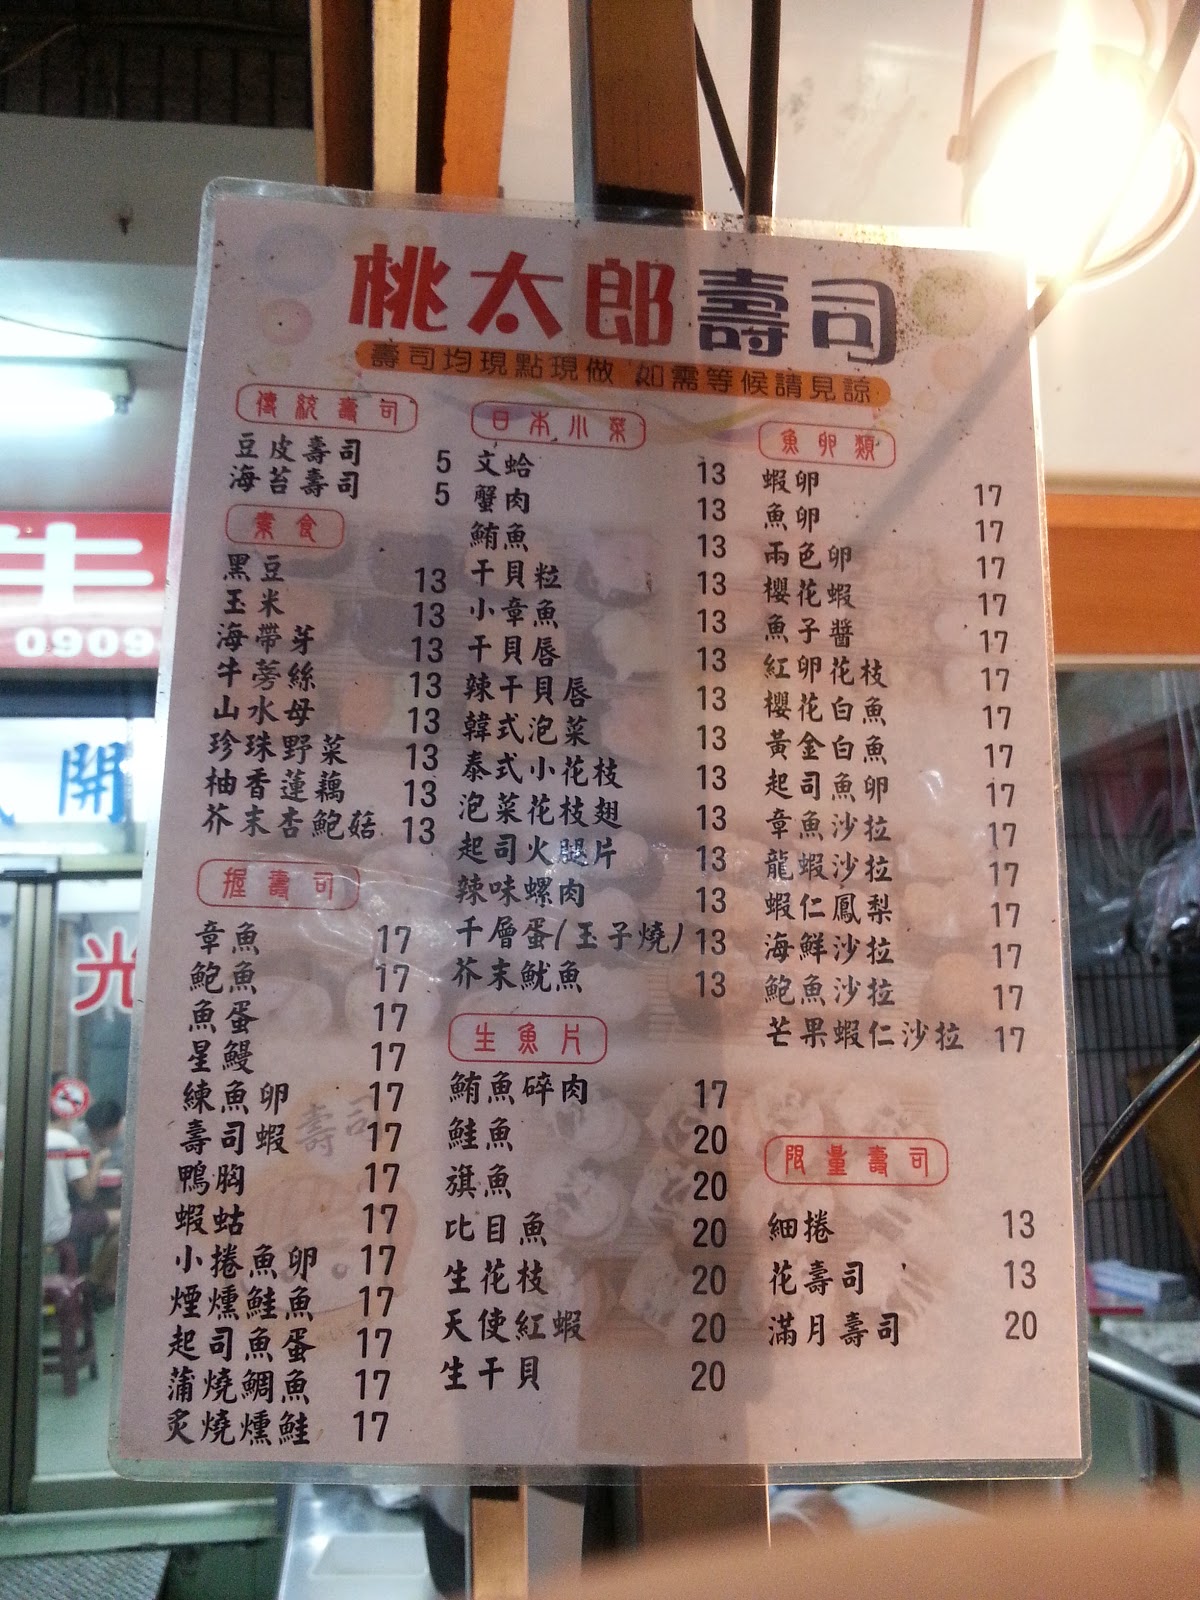 桃太郎壽司
壽司均現點現做 如需等候請見諒
傳統壽司
豆皮壽司 5
海苔壽司 5
素食
黑豆 13
玉米 13
海帶芽 13
牛蒡絲 13
山水母 13
珍珠野菜 13
柚香蓮藕 13
芥末杏鮑菇 13
握壽司
章魚 17
鮑魚 17
魚蛋 17
星鰻 17
練魚卵 17
壽司蝦 17
鴨胸 17
蝦蛄 17
小捲魚卵 17
煙燻鮭魚 17
起司魚蛋 17
蒲燒鯛魚 17
炙燒燻鮭 17
日本小菜
文蛤 13
蟹肉 13
鮪魚 13
干貝粒 13
小章魚 13
干貝唇 13
辣干貝唇 13
韓式泡菜 13
泰式小花枝 13
泡菜花枝翅 13
起司火腿片 13
辣味螺肉 13
千層蛋(玉子燒) 13
芥末魷魚 13
生魚片
鮪魚碎肉 17
鮭魚 20
旗魚 20
比目魚 20
生花枝 20
天使紅蝦 20
生干貝 20
魚卵類
蝦卵 17
魚卵 17
兩色卵 17
櫻花蝦 17
魚子醬 17
紅卵花枝 17
櫻花白魚 17
黃金白魚 17
起司魚卵 17
章魚沙拉 17
龍蝦沙拉 17
蝦仁鳳梨 17
海鮮沙拉 17
鮑魚沙拉 17
芒果蝦仁沙拉 17
限量壽司
細捲 13
花壽司 13
滿月壽司 20
牛
0909
開
光